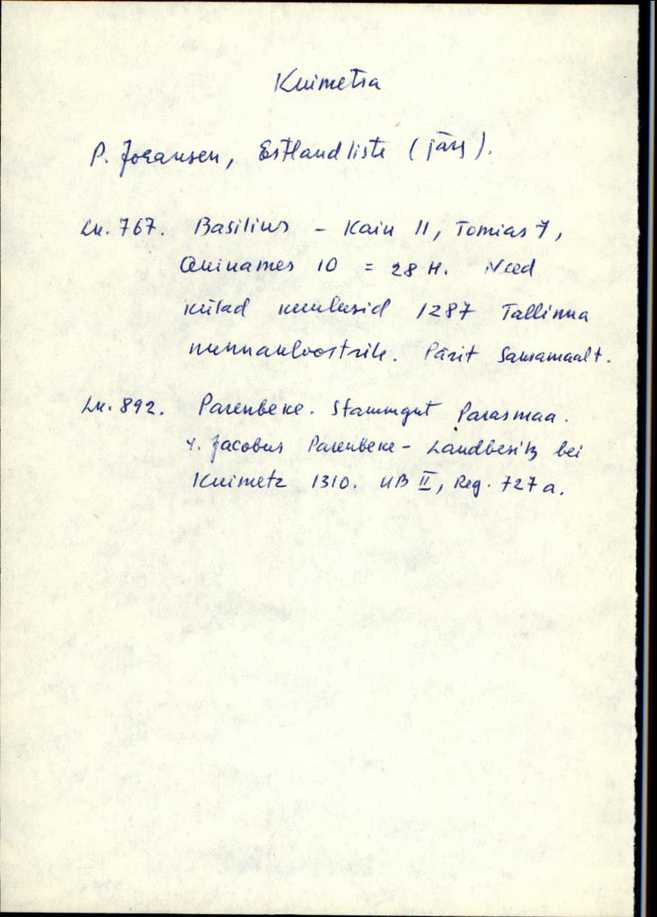 Kuimetsa
P. Johansen, Estlandliste (järg).
Lk. 767. Basilius – Kain 11, Tomias 7,
Quinames 10 = 28 H. Need
külad kuulusid 1287 Tallinna
nunnakloostrile. Pärit Saaremaalt.
Lk. 892. Parenbeke. Stammgut Parasmaa.
Jacobus Parenbeke – Landbesitz bei
Kuimetz 1310. UB II, Reg. 727a.